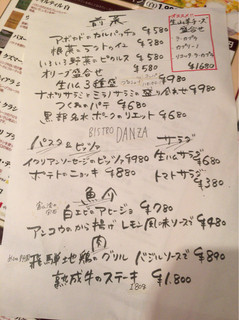 前菜
アボカドのカルパッチョ ¥580
根菜のラタトゥイユ ¥380
いろいろ野菜のピクルス ¥580
オリーブ盛合せ ¥580
生ハム3種盛 ¥980
ナポリサラミとミラノサラミの盛り合わせ ¥980
つくねのパテ ¥680
黒部名水ポークのリエット ¥680
¥1680
BISTRO DANZA
パスタ&ピッツァ
イタリアンソーセージのピッツァ ¥980
ポテトのニョッキ ¥880
サラダ
生ハムサラダ ¥680
トマトサラダ ¥380
魚介
白エビのアヒージョ ¥780
アンコウのから揚げ レモン風味ソースで ¥480
肉
飛騨地鶏のグリル バジルソースで ¥890
熟成牛のステーキ 180g ¥1.800